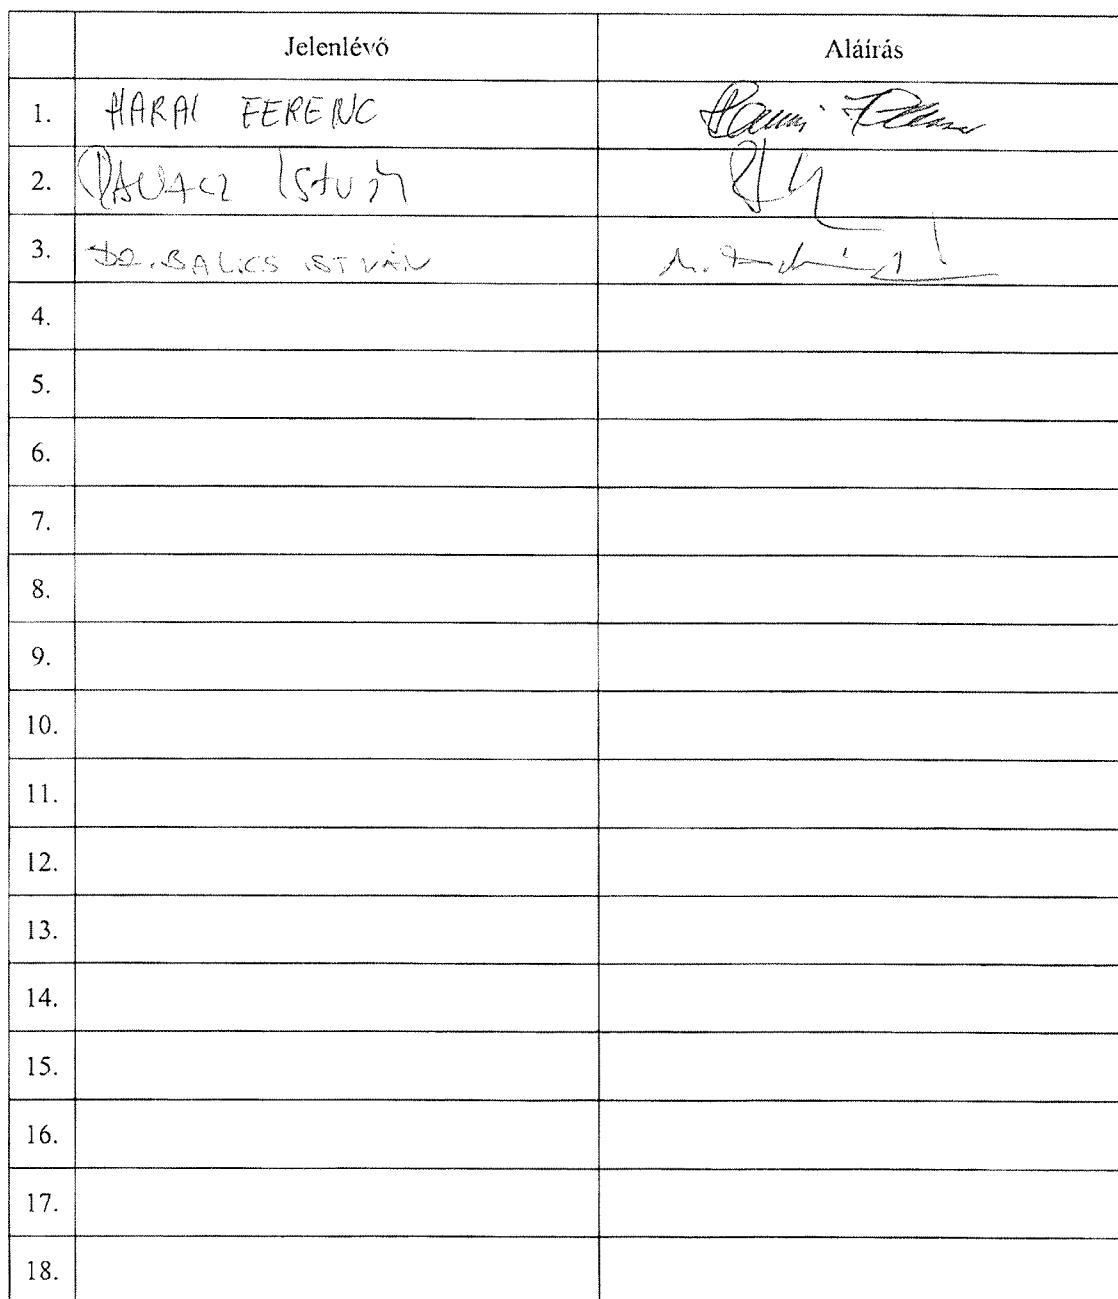 Jelenlévő Aláírás
1. HARAI FERENC
2. István
3. DR. BALICS ISTVÁN
4.
5.
6.
7.
8.
9.
10.
11.
12.
13.
14.
15.
16.
17.
18.